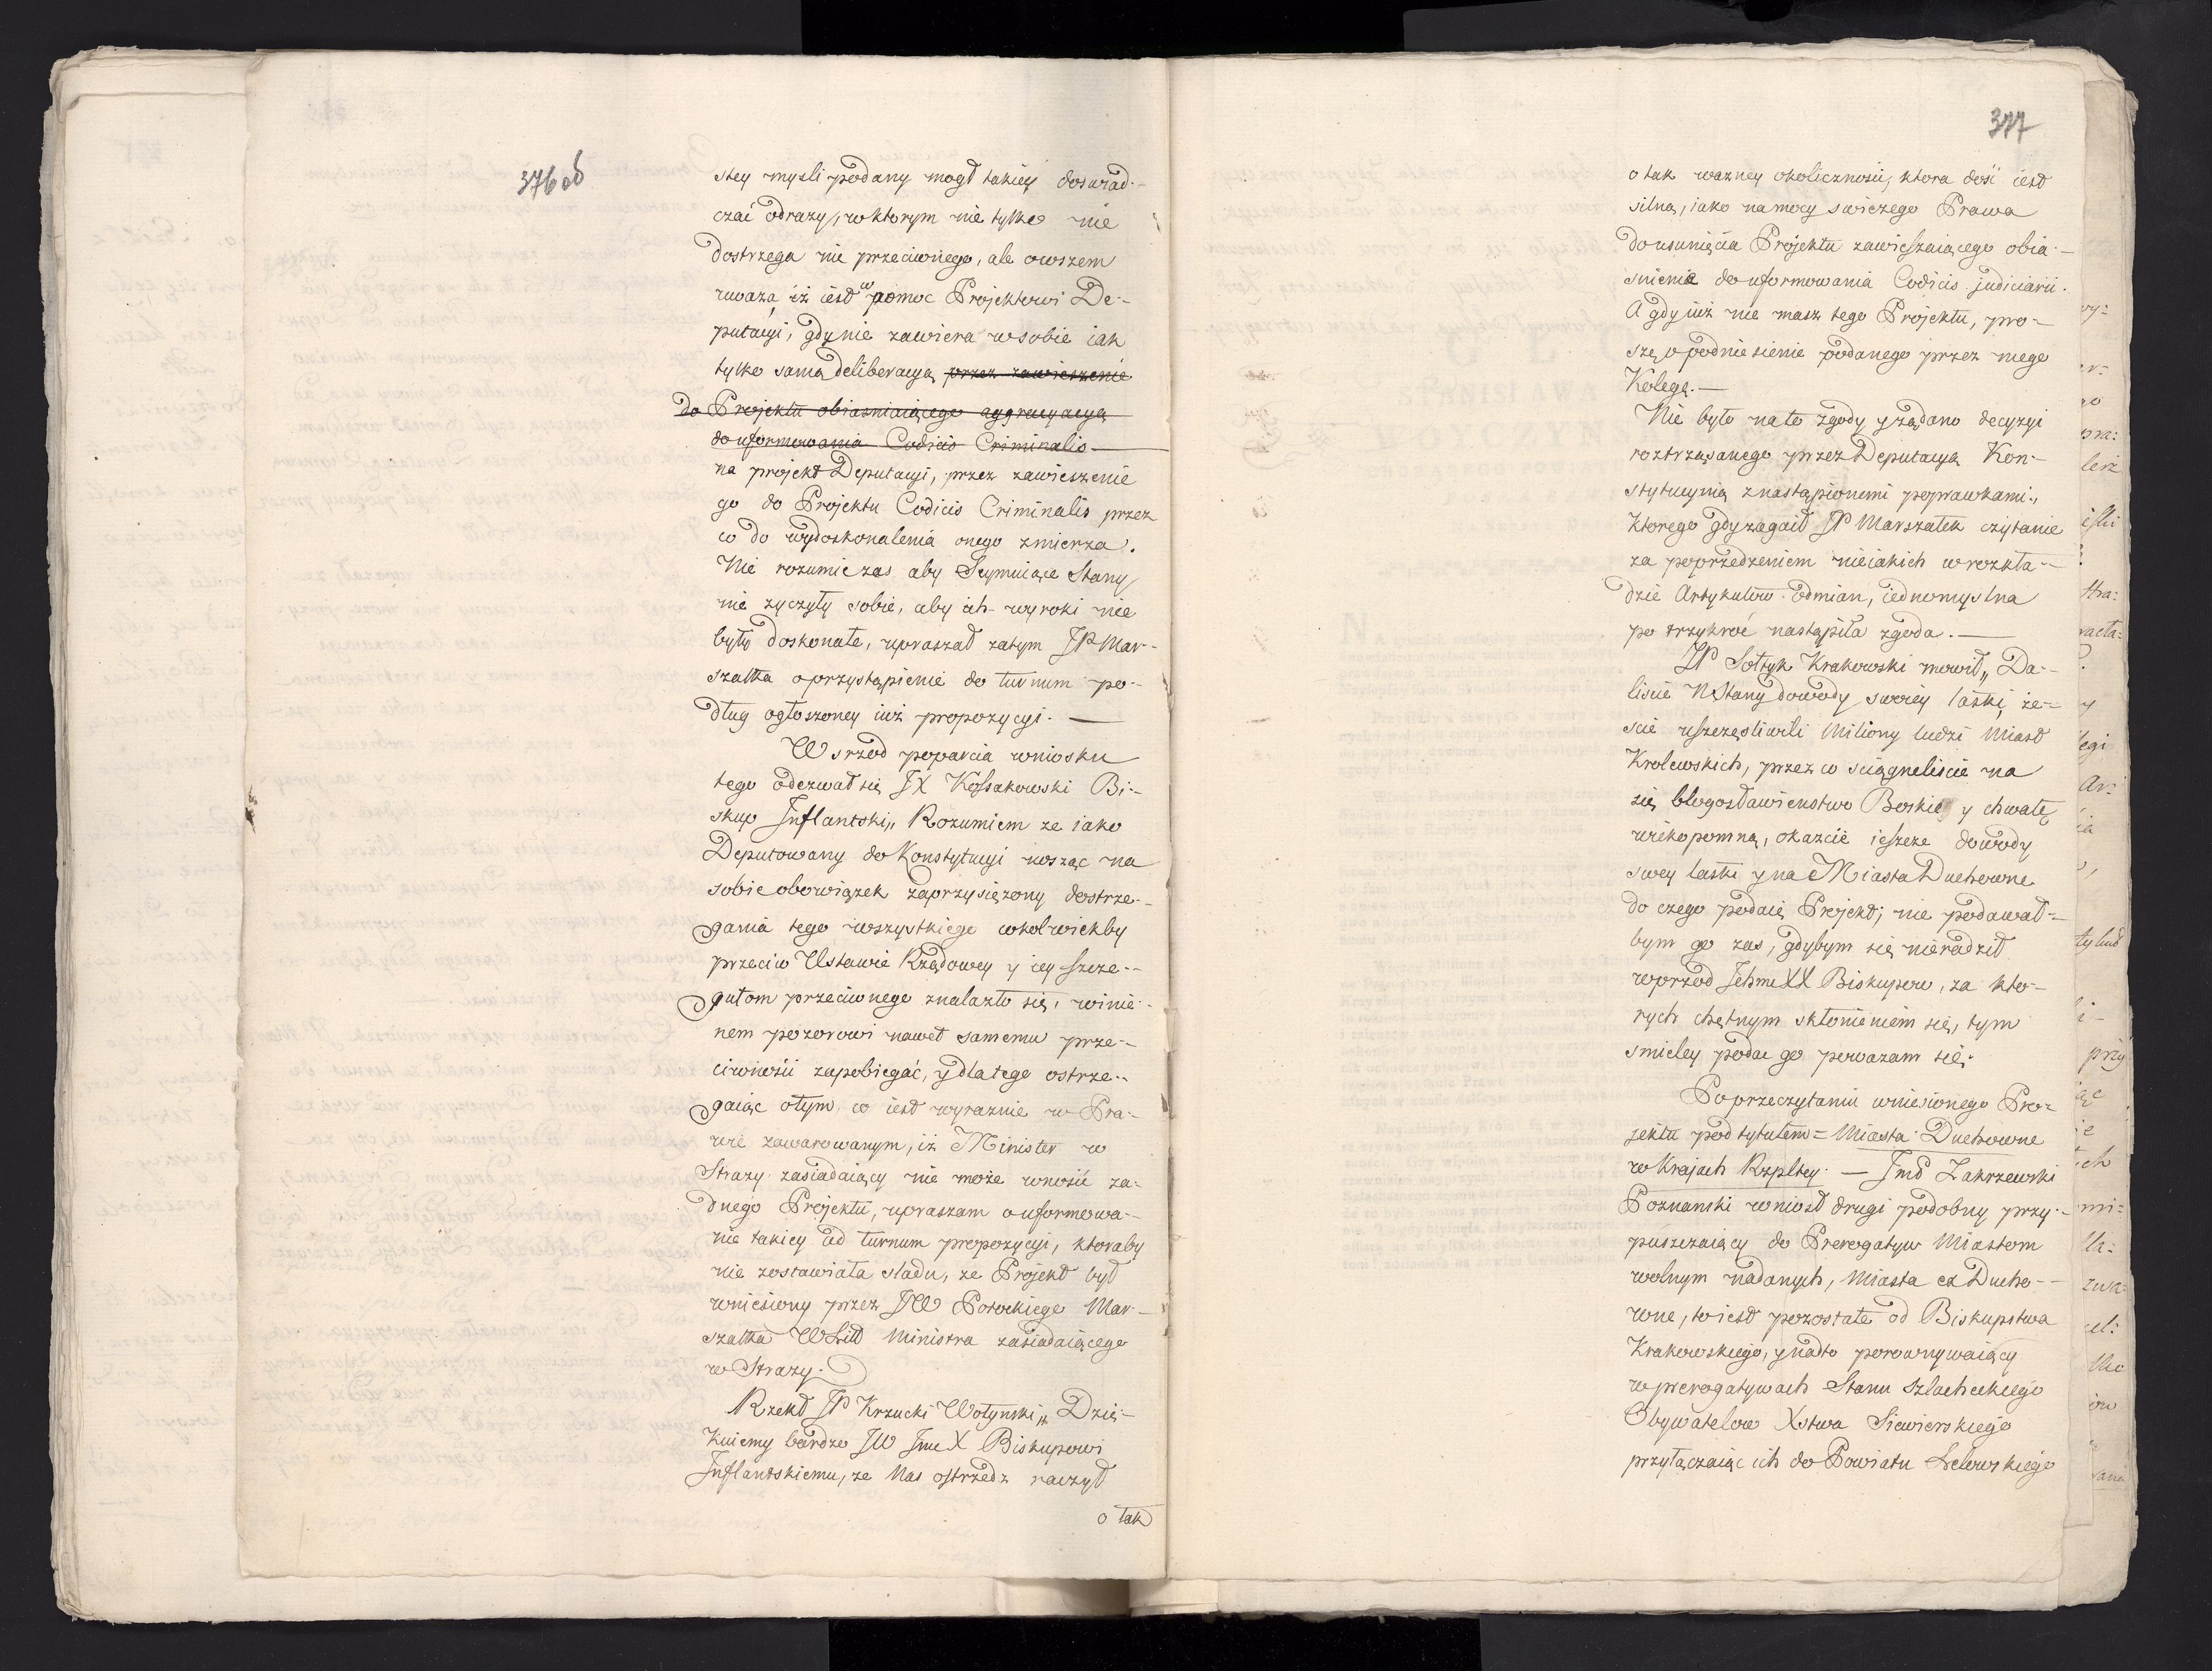 376 od
stey mysli podany mogł takiey doswiad-
czać odrazy, w ktorym nie tylko nie
dostrzega nic przeciwnego, ale owszem
uważa iż iest w pomoc Projektowi De-
putacyi, gdy nie zawiera w sobie iak
tylko samą deliberacyą przez zawieszenie
do Projektu obiasniaiącego aggracyacyą
do uformowania Codicis Criminalis
na projekt Deputacyi, przez zawieszenie
go do Projektu Codicis Criminalis przez
co do wydoskonalenia onego zmierza.
Nie rozumie zas aby Seymuiące Stany
nie zyczyły sobie, aby ich wyroki nie
były doskonałe, upraszał zatym JP Mar-
szałka o przystąpienie do turnum po-
dług ogłoszoney iuż propozycyi. —
Wsrzod poparcia wniosku
tego odezwał się JX Kossakowski Bi-
skup Inflantski„ Rozumiem ze iako
Deputowany do Konstytucyi nosząc na
sobie obowiązek zaprzysiężony dostrze-
gania tego wszystkiego cokolwiekby
przeciw Ustawie Rządowey y iey szcze-
gułom przeciwnego znalazło się, winie-
nem pozorowi nawet samemu prze-
ciwności zapobiegać, y dla tego ostrze-
gaiąc o tym co iest wyraznie w Pra-
wie zawarowanym, iż Minister w
Strazy zasiadaiący nie może wnosić za-
dnego Projektu, upraszam o uformowa-
nie takiey ad turnum propozycyi, ktoraby
nie zostawiała sladu, ze Projekt był
wniesiony przez JW Potockiego Mar-
szałka WLitt Ministra zasiadaiącego
w Strazy.
Rzekł JP Krzucki Wołynski„ Dzię-
kuiemy bardzo JW JmeX Biskupowi
Inflantskiemu, ze Nas ostrzedz raczył
o tak
377
o tak wazney okoliczności, ktora dość iest
silną, iako na mocy swiezego Prawa
do usunięcia Projektu zawieszaiącego obia-
snienie do uformowania Codicis judiciarii.
A gdy iuż nie masz tego Projektu, pro-
szę o podniesienie podanego przez mego
Kolegę. —
Nie było na to zgody y żądano decyzyi
roztrząsanego przez Deputacyą Kon-
stytucyiną z nastąpionemi poprawkami,
ktorego gdy zagaił JP Marszałek czytanie
za poprzedzeniem nieiakich w rozkła-
dzie Artykułow odmian, iednomyslna
po trzykroć nastąpiła zgoda. —
JP Sołtyk Krakowski mowił„ Da-
liscie NStany dowody swoiey łaski, że-
scie uszczęsliwili Miliony ludzi Miast
Krolewskich, przez co sciągneliscie na
się błogosławienstwo Boskie y chwałę
wiekopomną, okazcie ieszcze dowody
swey łaski y na Miasta Duchowne
do czego podaię Projekt; nie podawał-
bym go zas, gdybym się nieradził
wprzod JchmcXX Biskupow, za kto-
rych chętnym skłonieniem się, tym
smieley podac go powazam się.
Po przeczytaniu wniesionego Pro-
jektu pod tytułem = Miasta Duchowne
w Krajach Rzpltey. — Jmć Zakrzewski
Poznanski wniosł drugi podobny przy-
puszczaiący do Prerogatyw Miastom
wolnym nadanych, Miasta ex Ducho-
wne, to iest pozostałe od Biskupstwa
Krakowskiego, y nadto porownywaiący
w prerogatywach Stanu Szlacheckiego
Obywatelow Xstwa Siewierskiego
przyłączaiąc ich do Powiatu Lelowskiego